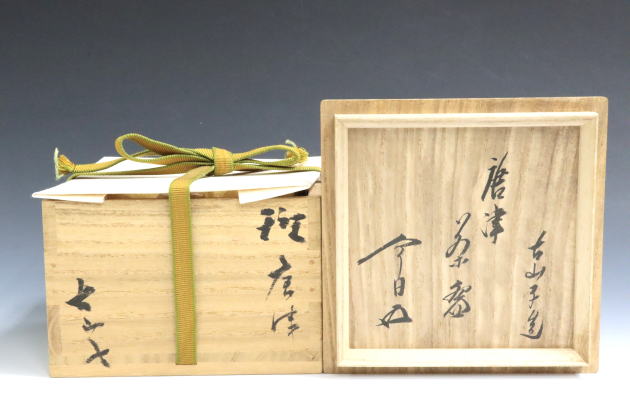 斑
唐津
古山子
古山子造
唐津
茶碗
今日